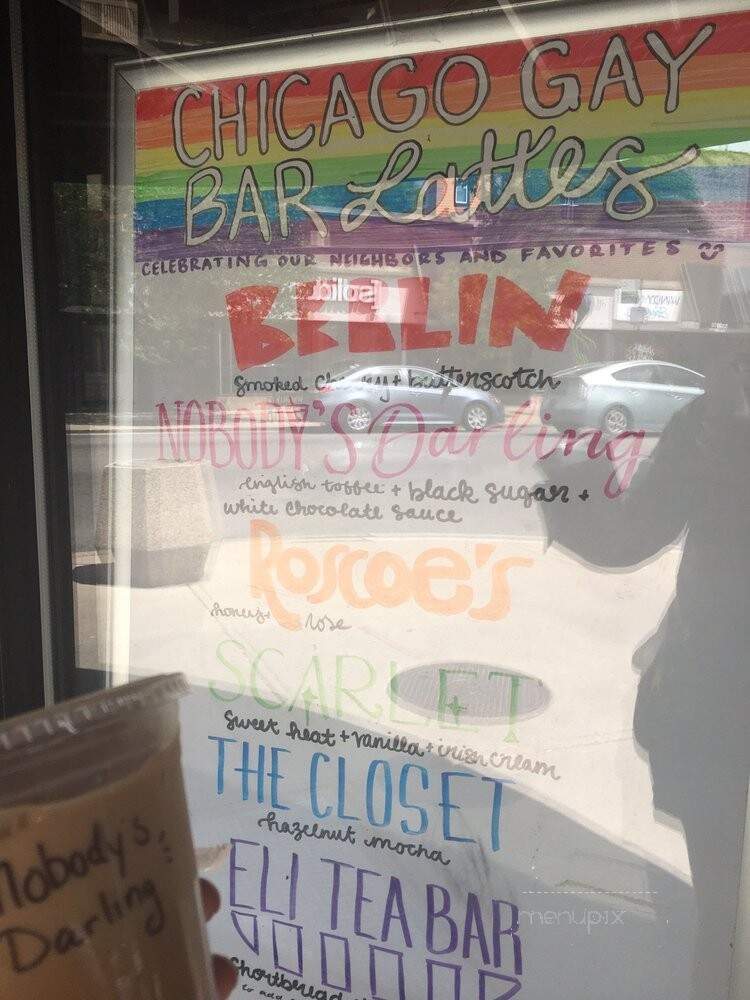 CHICAGO GAY
BAR Lattes
CELEBRATING OUR NEIGHBORS AND FAVORITES
BERLIN
Smoked Cherry + butterscotch
NOBODY'S Darling
english toffee + black sugar +
white chocolate sauce
Roscoe's
honey + rose
SCARLET
Sweet heat + vanilla + irish cream
THE CLOSET
hazelnut mocha
ELI TEA BAR
Shortbread
Nobody's
Darling
menupix